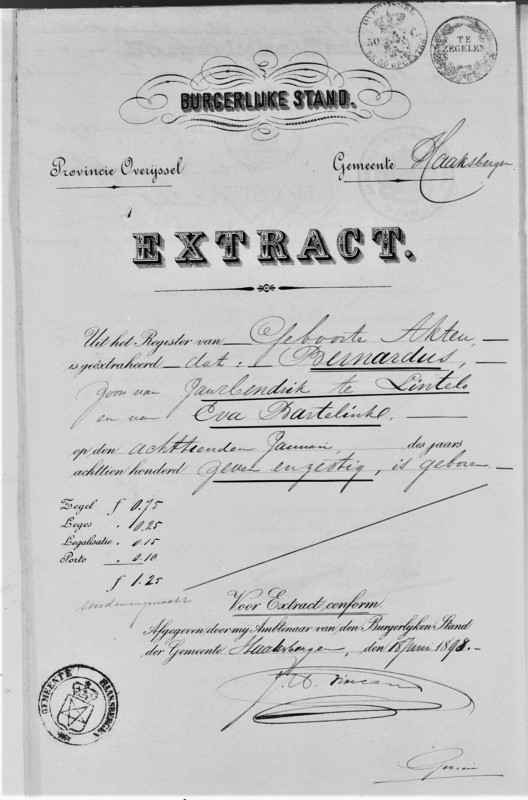 OVERIJSSEL
50 C.
EN 38 OPCENTEN
TE
ZEGELEN
BURGERLIJKE STAND.
Provincie Overijssel
Gemeente Haaksbergen
EXTRACT.
Uit het Register van Geboorte Akten,
is geëxtraheerd dat: Bernardus,
zoon van Jan Hendrik te Lintelo
en van Eva Bartelink.
op den achttienden Januari, des jaars
achttien honderd zeven en zestig, is geboren
Zegel f 0.75
Leges " 0.25
Legalisatie " 0.15
Porto " 0.10
f 1.25
Voor Extract conform
Afgegeven door mij Ambtenaar van den Burgerlijken Stand
der Gemeente Haaksbergen, den 18 Juni 1898.
GEMEENTE HAAKSBERGEN